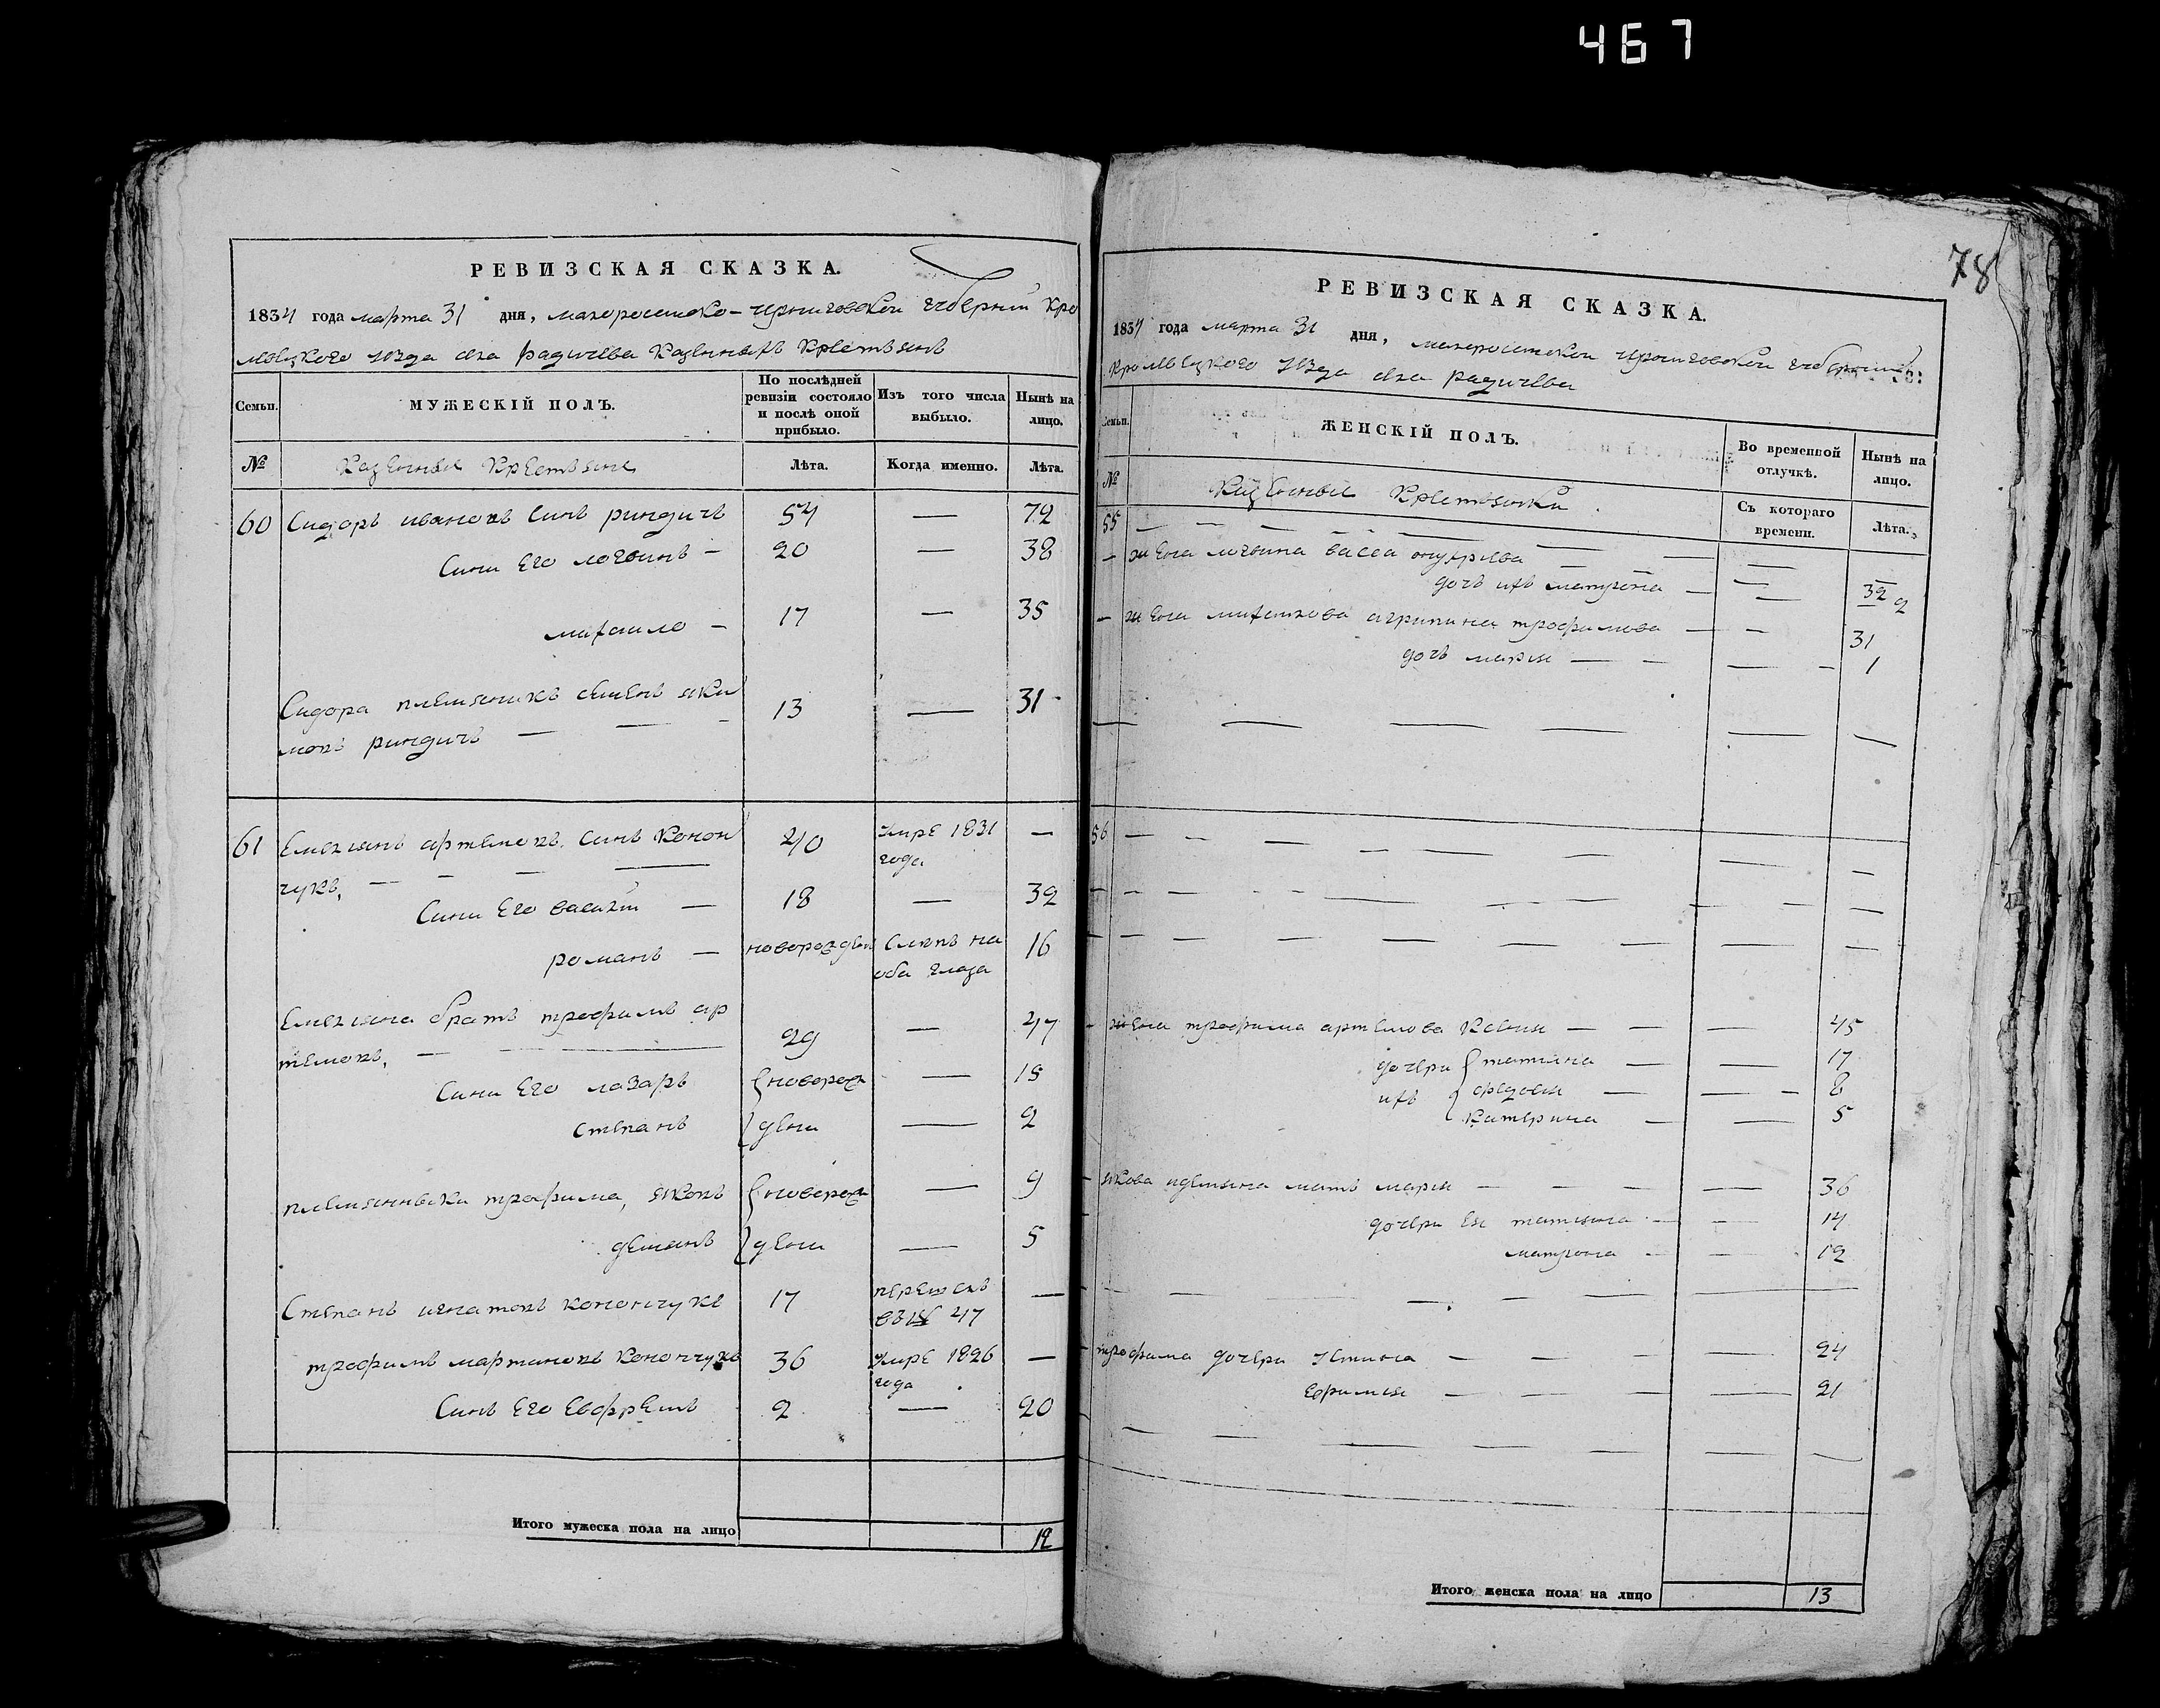 467
78
РЕВИЗСКАЯ СКАЗКА.
1834 года марта 31 дня, малоросииско-черниговской губернии кро
левецкого уезда села радичева казенныхъ крестьянъ
Семьи.
МУЖЕСКІЙ ПОЛЪ.
По послѣдней ревизіи состояло и послѣ оной прибыло.
Изъ того числа выбыло.
Нынѣ на лицо.
№
казенные крестьяне
Лѣта.
Когда именно.
Лѣта.
60 Сидоръ ивановъ синъ риндичъ 54 — 72
Сини его логвинъ — 20 — 38
михаило — 17 — 35
Сидора племяникъ семенъ яки
мовъ риндичъ — 13 — 31
61 Емелиянъ артемовъ синъ конон 40 умре 1831 —
чукъ, — года
Сини его василий — 18 — 32
романъ — новорожден слепъ на 16
оба глаза
Емелияна братъ трофимъ ар
темовъ, — 29 — 47
Сини его лазаръ новорож — 15
степанъ дени — 2
племянныки трофима, яковъ новорож — 9
демянъ дени — 5
Степанъ игнатовъ конончукъ 17 перешелъ —
въ № 47
трофимъ мартиновъ конончукъ 36 умре 1826 —
года
Синъ его евфремъ 2 — 20
Итого мужеска пола на лицо 12
РЕВИЗСКАЯ СКАЗКА.
1834 года марта 31 дня, малоросииской черниговской губернии
кролевецкого уезда села радичева
Семьи.
ЖЕНСКІЙ ПОЛЪ.
Во временной отлучкѣ.
Нынѣ на лицо.
№
казенные крестьянки
Съ котораго времени.
Лѣта.
55 — — — —
— жена логвина васса — 32
дочъ ихъ матрона — — 2
— жена михаилова агрипина трофимова — — 31
дочъ мария — — 1
56 — — — —
— жена трофима артемова ксения — — 45
дочери татияна — — 17
ихъ федосия — — 8
катерина — — 5
— якова идемяна мать мария — — 36
дочери ея татияна — — 14
матрона — — 12
трофима дочери устина — — 24
ефимия — — 21
Итого женска пола на лицо 13